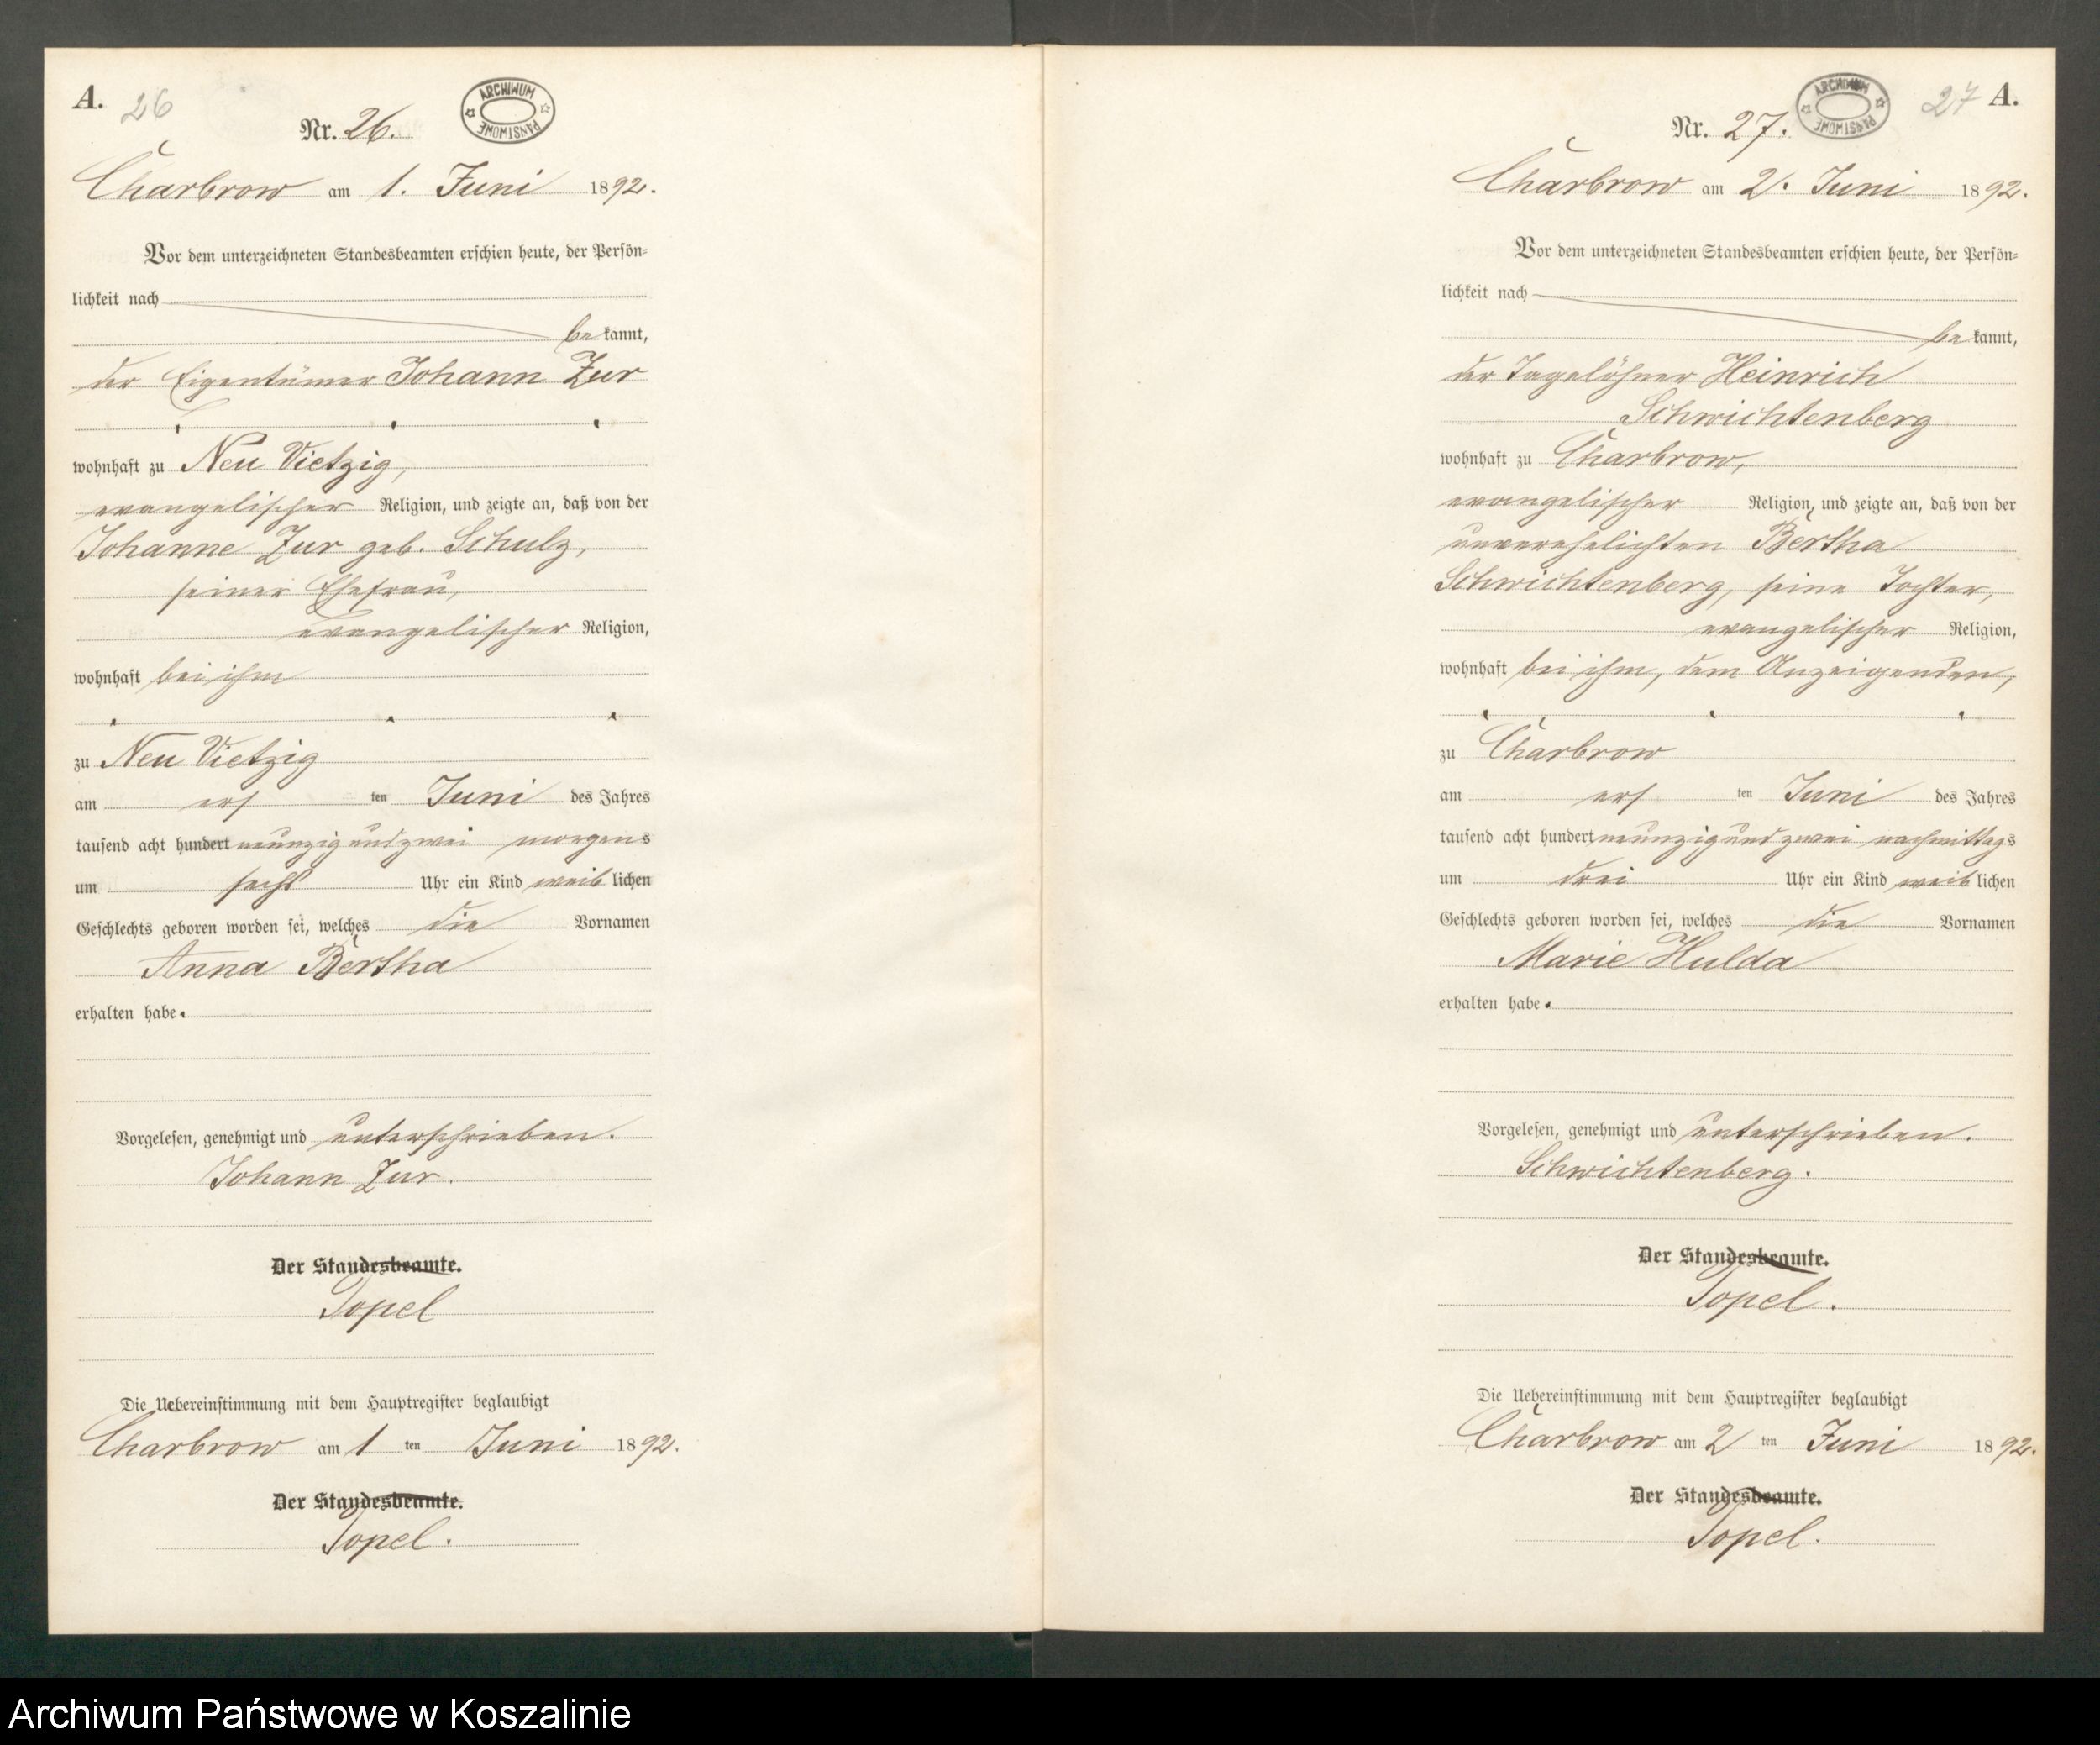 A. 26
ARCHIWUM PAŃSTWOWE
Nr. 26.
Charbrow am 1. Juni 1892.
Vor dem unterzeichneten Standesbeamten erschien heute, der Persön-
lichkeit nach
bekannt,
der Eigentümer Johann Zur
wohnhaft zu Neu Vietzig,
evangelischer Religion, und zeigte an, daß von der
Johanne Zur geb. Schulz,
seiner Ehefrau,
evangelischer Religion,
wohnhaft bei ihm
zu Neu Vietzig
am ers ten Juni des Jahres
tausend acht hundert neunzig und zwei morgens
um sechs Uhr ein Kind weiblichen
Geschlechts geboren worden sei, welches die Vornamen
Anna Bertha
erhalten habe.
Vorgelesen, genehmigt und unterschrieben.
Johann Zur.
Der Standesbeamte.
Topel
Die Uebereinstimmung mit dem Hauptregister beglaubigt
Charbrow am 1 ten Juni 1892.
Der Standesbeamte.
Topel.
27 A.
ARCHIWUM PAŃSTWOWE
Nr. 27.
Charbrow am 2. Juni 1892.
Vor dem unterzeichneten Standesbeamten erschien heute, der Persön-
lichkeit nach
bekannt,
der Tagelöhner Heinrich
Schwichtenberg
wohnhaft zu Charbrow,
evangelischer Religion, und zeigte an, daß von der
unverehelichten Bertha
Schwichtenberg, seine Tochter,
evangelischer Religion,
wohnhaft bei ihm, dem Anzeigenden,
zu Charbrow
am ers ten Juni des Jahres
tausend acht hundert neunzig und zwei nachmittags
um drei Uhr ein Kind weiblichen
Geschlechts geboren worden sei, welches die Vornamen
Marie Hulda
erhalten habe.
Vorgelesen, genehmigt und unterschrieben.
Schwichtenberg.
Der Standesbeamte.
Topel.
Die Uebereinstimmung mit dem Hauptregister beglaubigt
Charbrow am 2 ten Juni 1892.
Der Standesbeamte.
Topel.
Archiwum Państwowe w Koszalinie